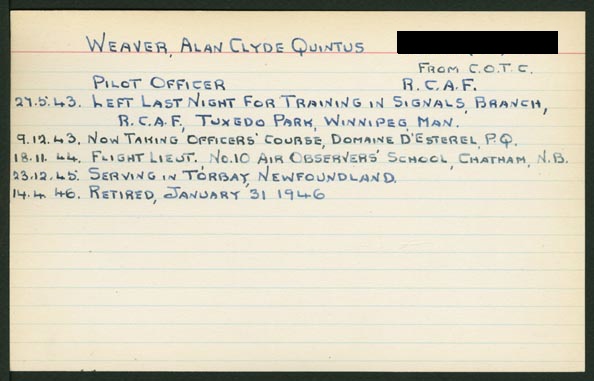 WEAVER, ALAN CLYDE QUINTUS
FROM C.O.T.C.
PILOT OFFICER R.C.A.F.
27.5.43. LEFT LAST NIGHT FOR TRAINING IN SIGNALS BRANCH,
R.C.A.F., TUXEDO PARK, WINNIPEG, MAN.
9.12.43. NOW TAKING OFFICERS' COURSE, DOMAINE D'ESTEREL, P.Q.
18.11.44. FLIGHT LIEUT. NO.10 AIR OBSERVERS' SCHOOL, CHATHAM, N.B.
23.12.45. SERVING IN TORBAY, NEWFOUNDLAND.
14.4.46. RETIRED, JANUARY 31 1946